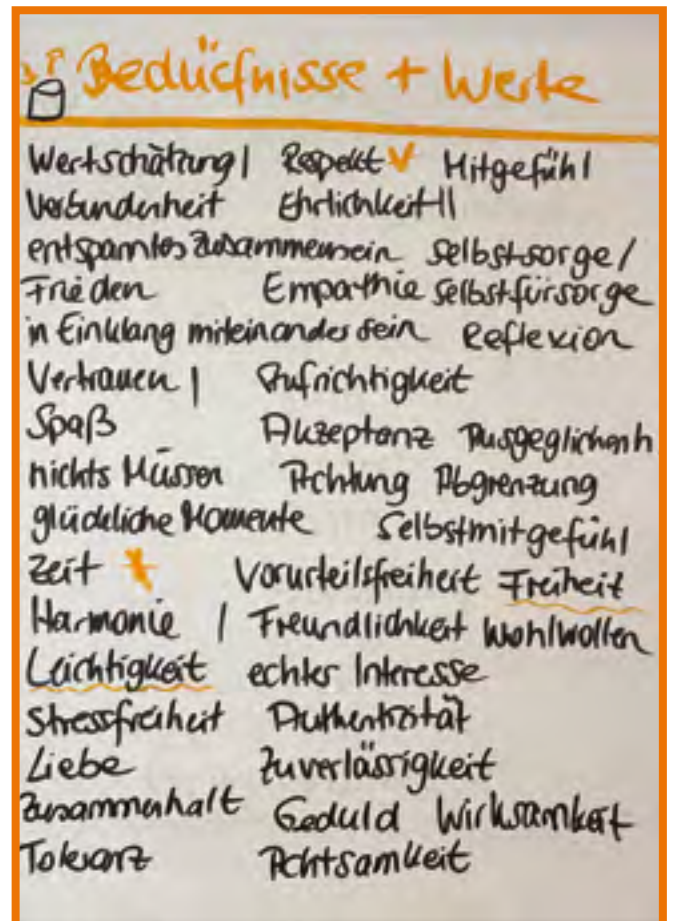 Bedürfnisse + Werte
Wertschätzung | Respekt Mitgefühl
Verbundenheit Ehrlichkeit ||
entspanntes Zusammensein Selbstsorge /
Frieden Empathie Selbstfürsorge
in Einklang miteinander sein Reflexion
Vertrauen | Aufrichtigkeit
Spaß Akzeptanz Ausgeglichenh
nichts Müssen Achtung Abgrenzung
glückliche Momente Selbstmitgefühl
Zeit Vorurteilsfreiheit Freiheit
Harmonie | Freundlichkeit Wohlwollen
Leichtigkeit echtes Interesse
Stressfreiheit Authentizität
Liebe Zuverlässigkeit
Zusammenhalt Geduld Wirksamkeit
Toleranz Achtsamkeit